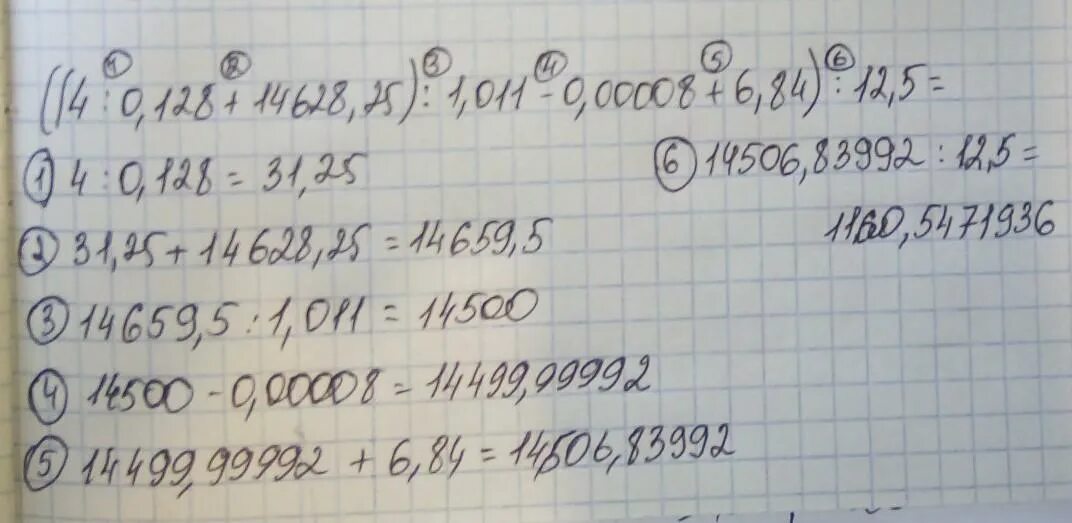 ① ② ③ ④ ⑤ ⑥
((4 : 0,128 + 14628,25) : 1,011 - 0,00008 + 6,84) : 12,5 =
① 4 : 0,128 = 31,25
② 31,25 + 14628,25 = 14659,5
③ 14659,5 : 1,011 = 14500
④ 14500 - 0,00008 = 14499,99992
⑤ 14499,99992 + 6,84 = 14506,83992
⑥ 14506,83992 : 12,5 =
1160,5471936